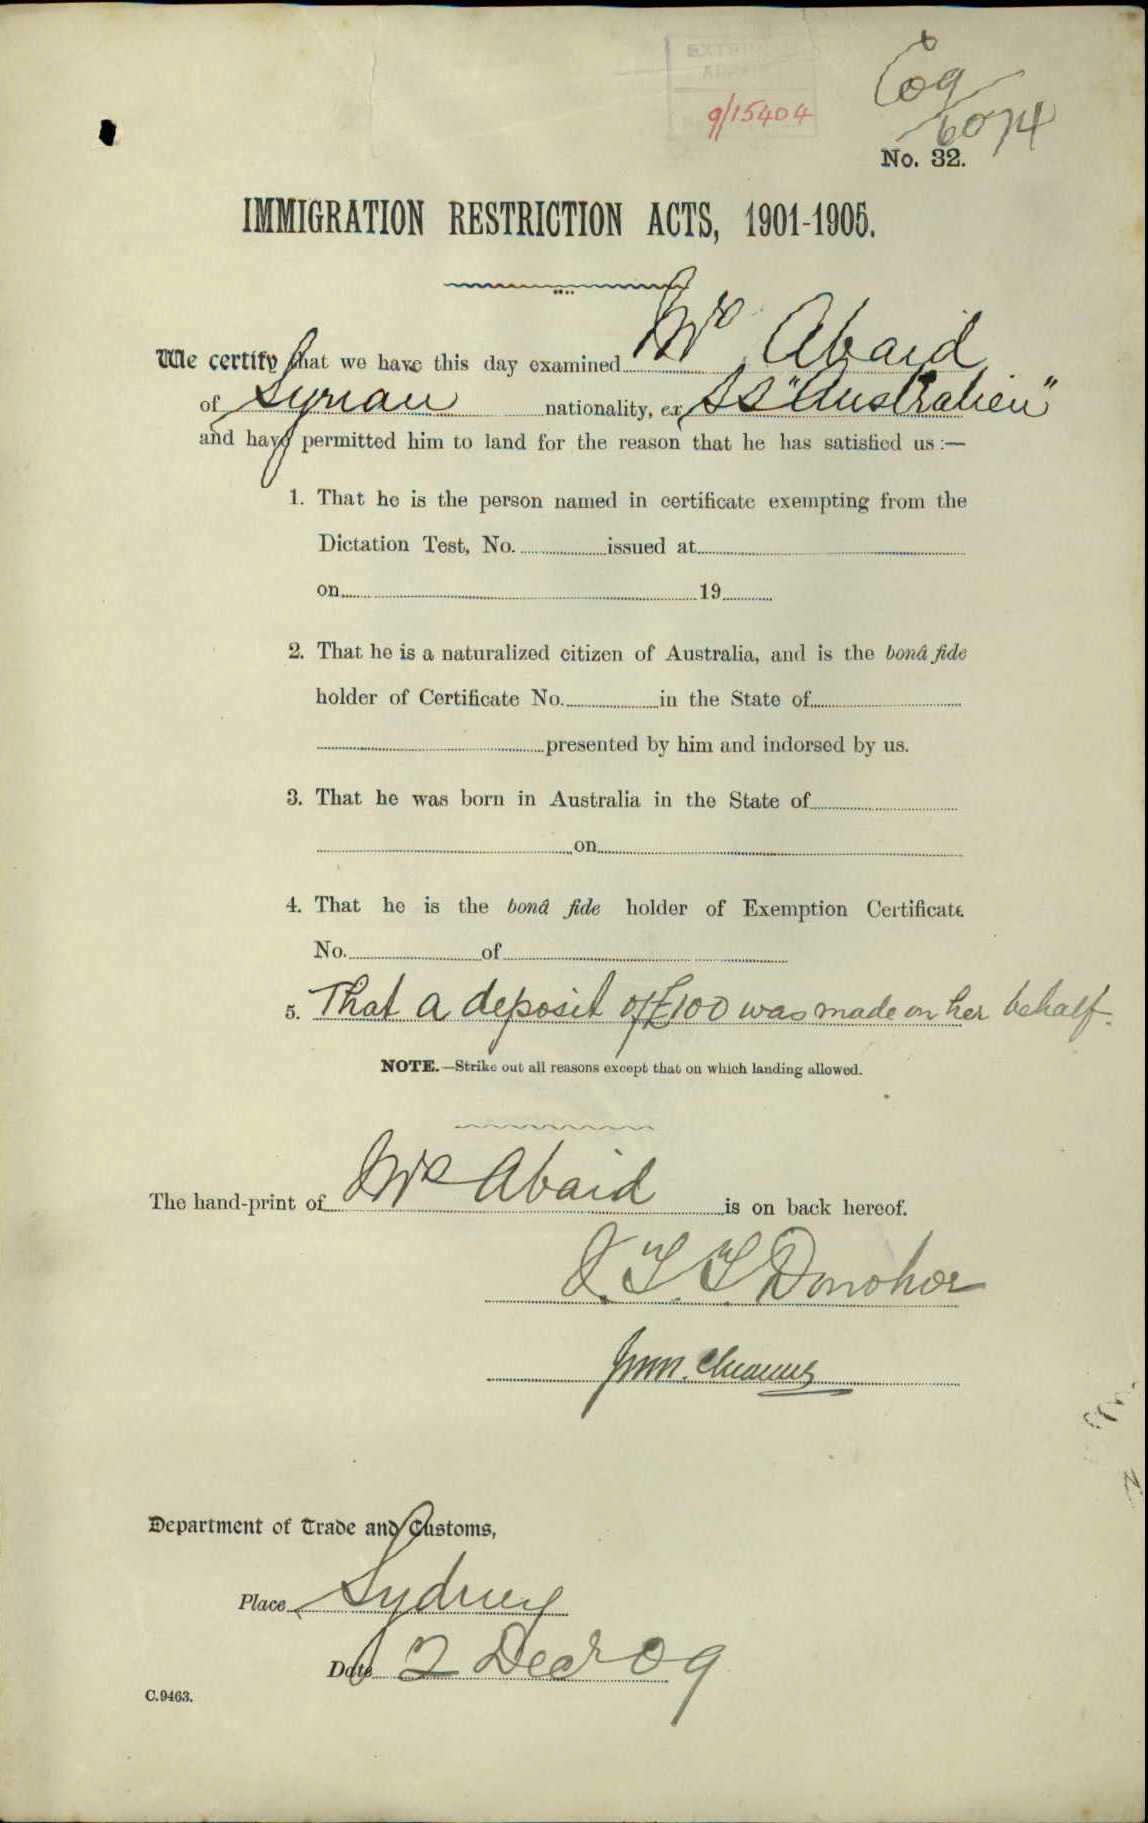 9/15404
C09
6074
No. 32.
IMMIGRATION RESTRICTION ACTS, 1901-1905.
We certify that we have this day examined Mrs Abaid
of Syrian nationality, ex SS "Australien"
and have permitted him to land for the reason that he has satisfied us :—
1. That he is the person named in certificate exempting from the
Dictation Test, No. issued at
on 19
2. That he is a naturalized citizen of Australia, and is the bonâ fide
holder of Certificate No. in the State of
presented by him and indorsed by us.
3. That he was born in Australia in the State of
on
4. That he is the bonâ fide holder of Exemption Certificate
No. of
5. That a deposit of £100 was made on her behalf.
NOTE.—Strike out all reasons except that on which landing allowed.
The hand-print of Mrs Abaid is on back hereof.
J. T. T. Donohoe
Department of Trade and Customs,
Place Sydney
Date 2 Decr 09
C.9463.